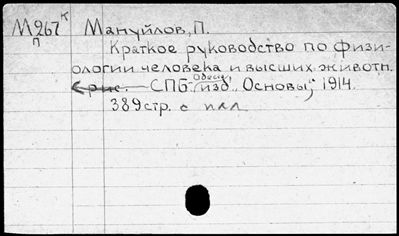 М967 к Мануйлов, П.
п
Краткое руководство по физи-
ологии человека и высших животн.
с рис. СПБ. изд. "Основы," 1914.
389 стр. с илл